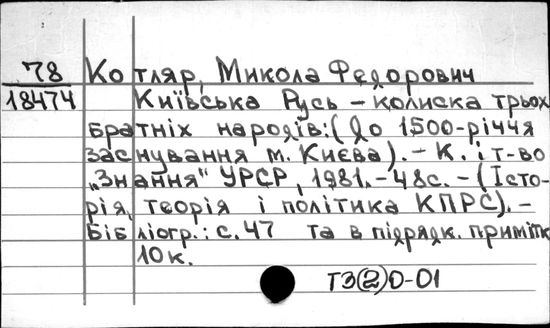 78 Котляр, Микола Федорович
18474 Київська Русь – колиска трьох
братніх народів: (до 1500-річчя
заснування м. Києва). – К. : т-во
„Знання" УРСР, 1981. – 48с. – (Істо-
рія, теорія і політика КПРС). –
Бібліогр.: с. 47 та в підрядк. приміт.
10к.
Т3(2)0-01